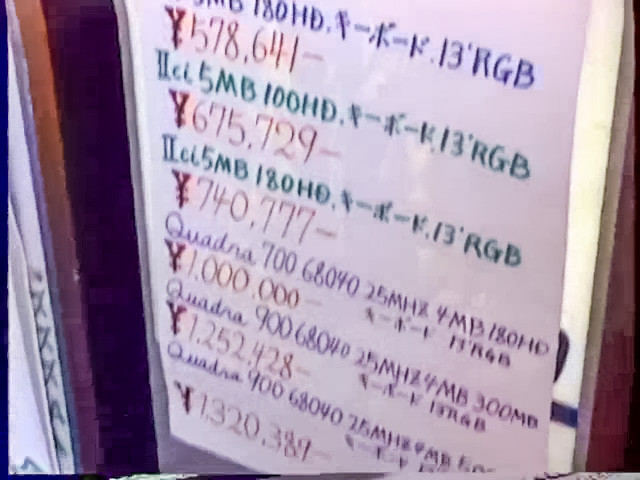 5MB 180HD.キーボード.13"RGB
¥578,641-
IIci 5MB 100HD.キーボード.13"RGB
¥675,729-
IIci 5MB 180HD.キーボード.13"RGB
¥740,777-
Quadra 700 68040 25MHZ 4MB 180HD
キーボード 13"RGB
¥1,000,000-
Quadra 900 68040 25MHZ 4MB 300MB
キーボード 13"RGB
¥1,252,428-
Quadra 900 68040 25MHZ 4MB
キーボード
¥1,320,389-